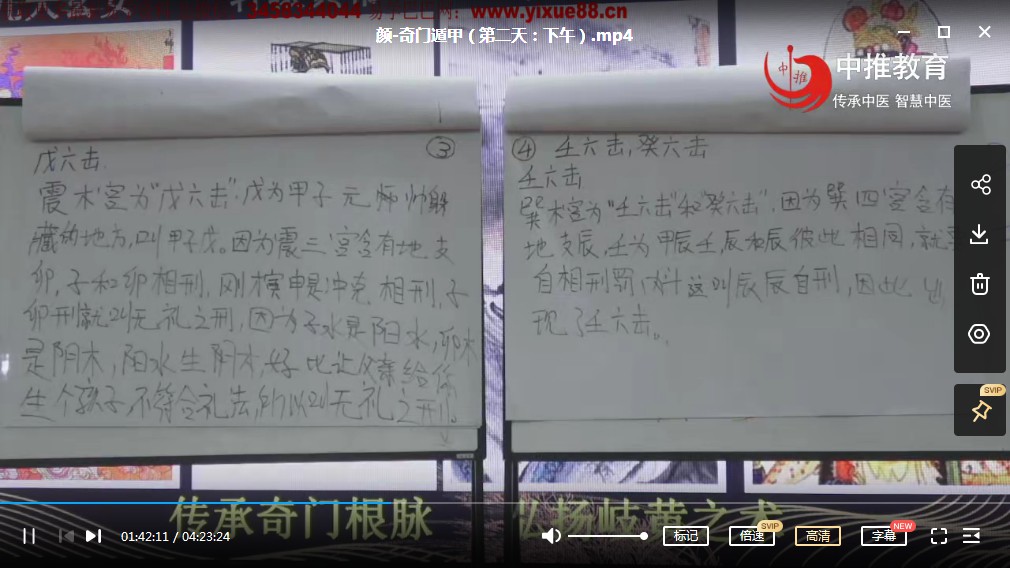 3458344044 易学巴巴网：www.yixue88.cn
颜-奇门遁甲（第二天：下午）.mp4
中推
中推教育
传承中医 智慧中医
戊六击.
③
震木宫为"戊六击".戊为甲子元帅
藏的地方,叫甲子戊。因为震三宫含有地支
卯,子和卯相刑,刚才寅申是冲克相刑,子
卯刑就叫无礼之刑,因为子水是阳水,卯木
是阴木,阳水生阴木,好比让父亲给你
生个孩子,不符合礼法,所以叫无礼之刑。
④ 壬六击,癸六击
壬六击
巽木宫为"壬六击"和"癸六击".因为巽四宫含有
地支辰,壬为甲辰壬,辰和辰彼此相同,就
自相刑罚,这叫辰辰自刑,因此出
现了壬六击。
传承奇门根脉
弘扬岐黄之术
SVIP
01:42:11 / 04:23:24
标记
倍速
SVIP
高清
字幕
NEW